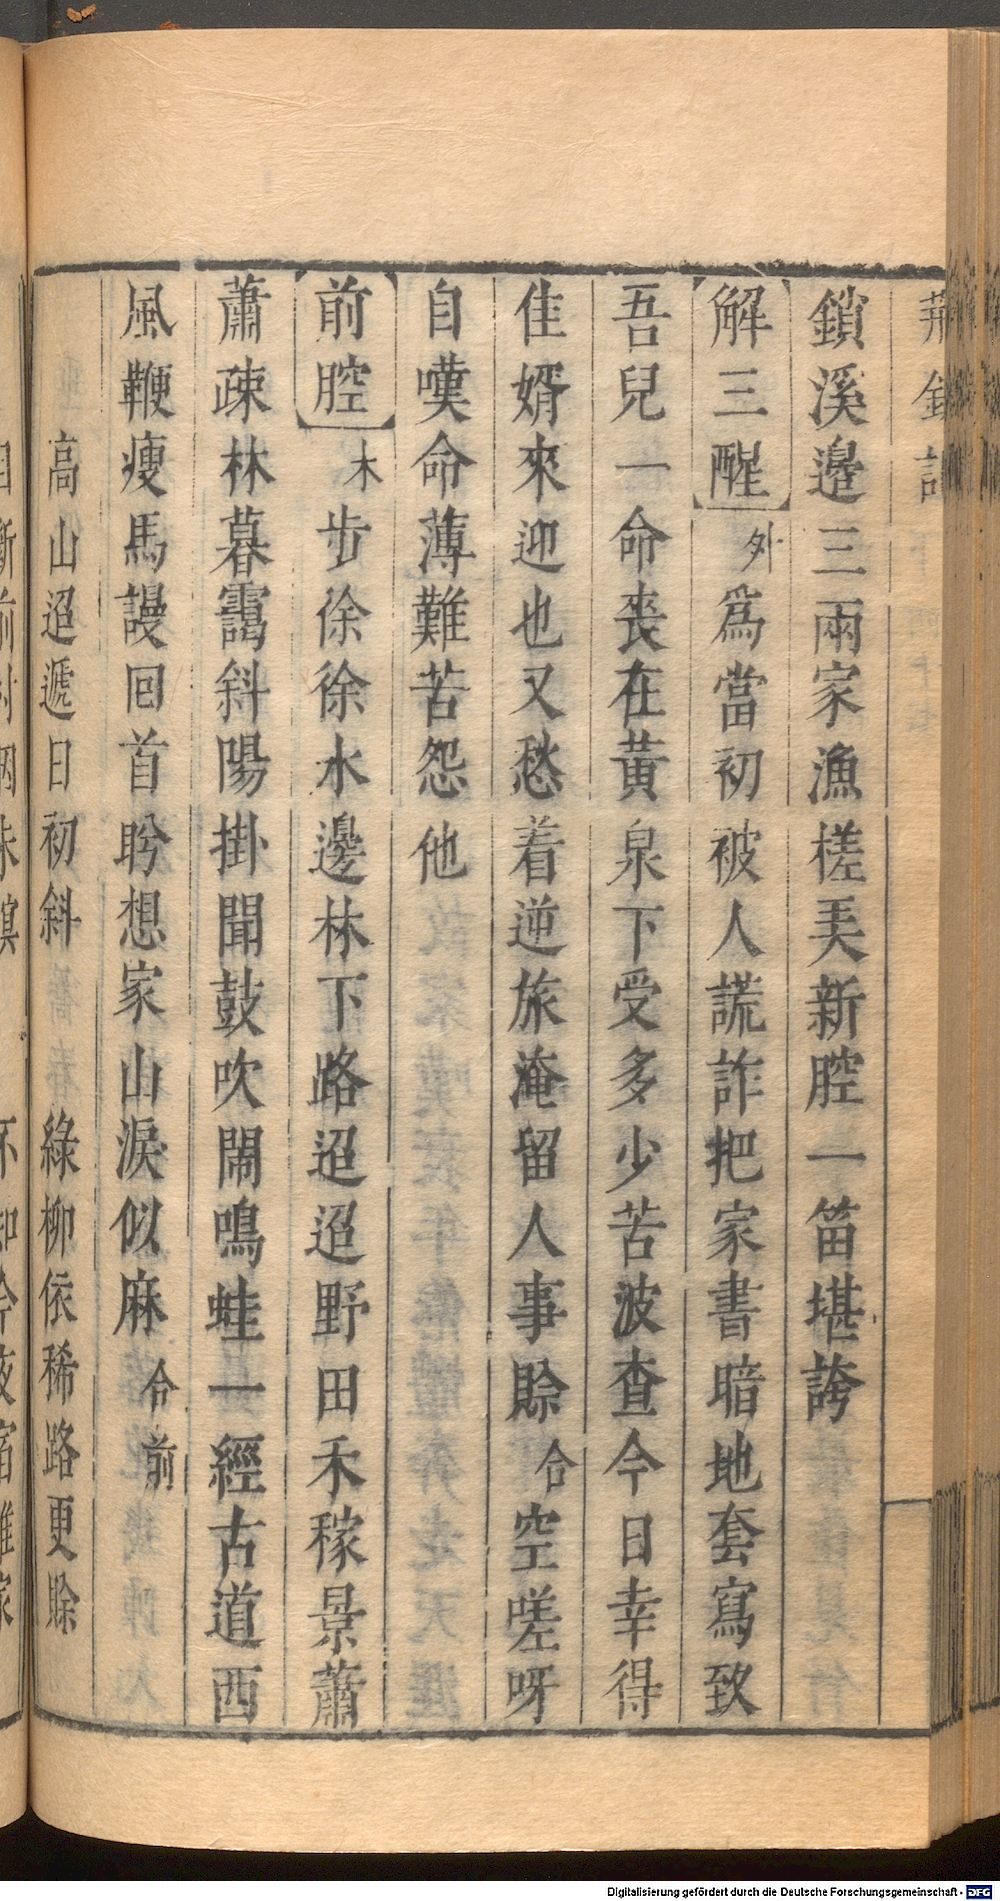 荆釵記
鎖溪邉三兩家漁槎美新腔一笛堪誇
解三酲 外 爲當初被人謊詐把家書暗地套寫致
吾兒一命丧在黃泉下受多少苦波查今日幸得
佳婿來迎也又愁着逆旅淹留人事賒 合 空嗟呀
自嘆命薄難苦怨他
前腔 末 步徐徐水邊林下路迢迢野田禾稼景蕭
蕭疎林暮靄斜陽掛聞鼓吹閙鳴蛙一經古道西
風鞭瘦馬謾回首盻想家山淚似麻 合前
高山迢遞日初斜 綠柳依稀路更賒
Digitalisierung gefördert durch die Deutsche Forschungsgemeinschaft - DFG